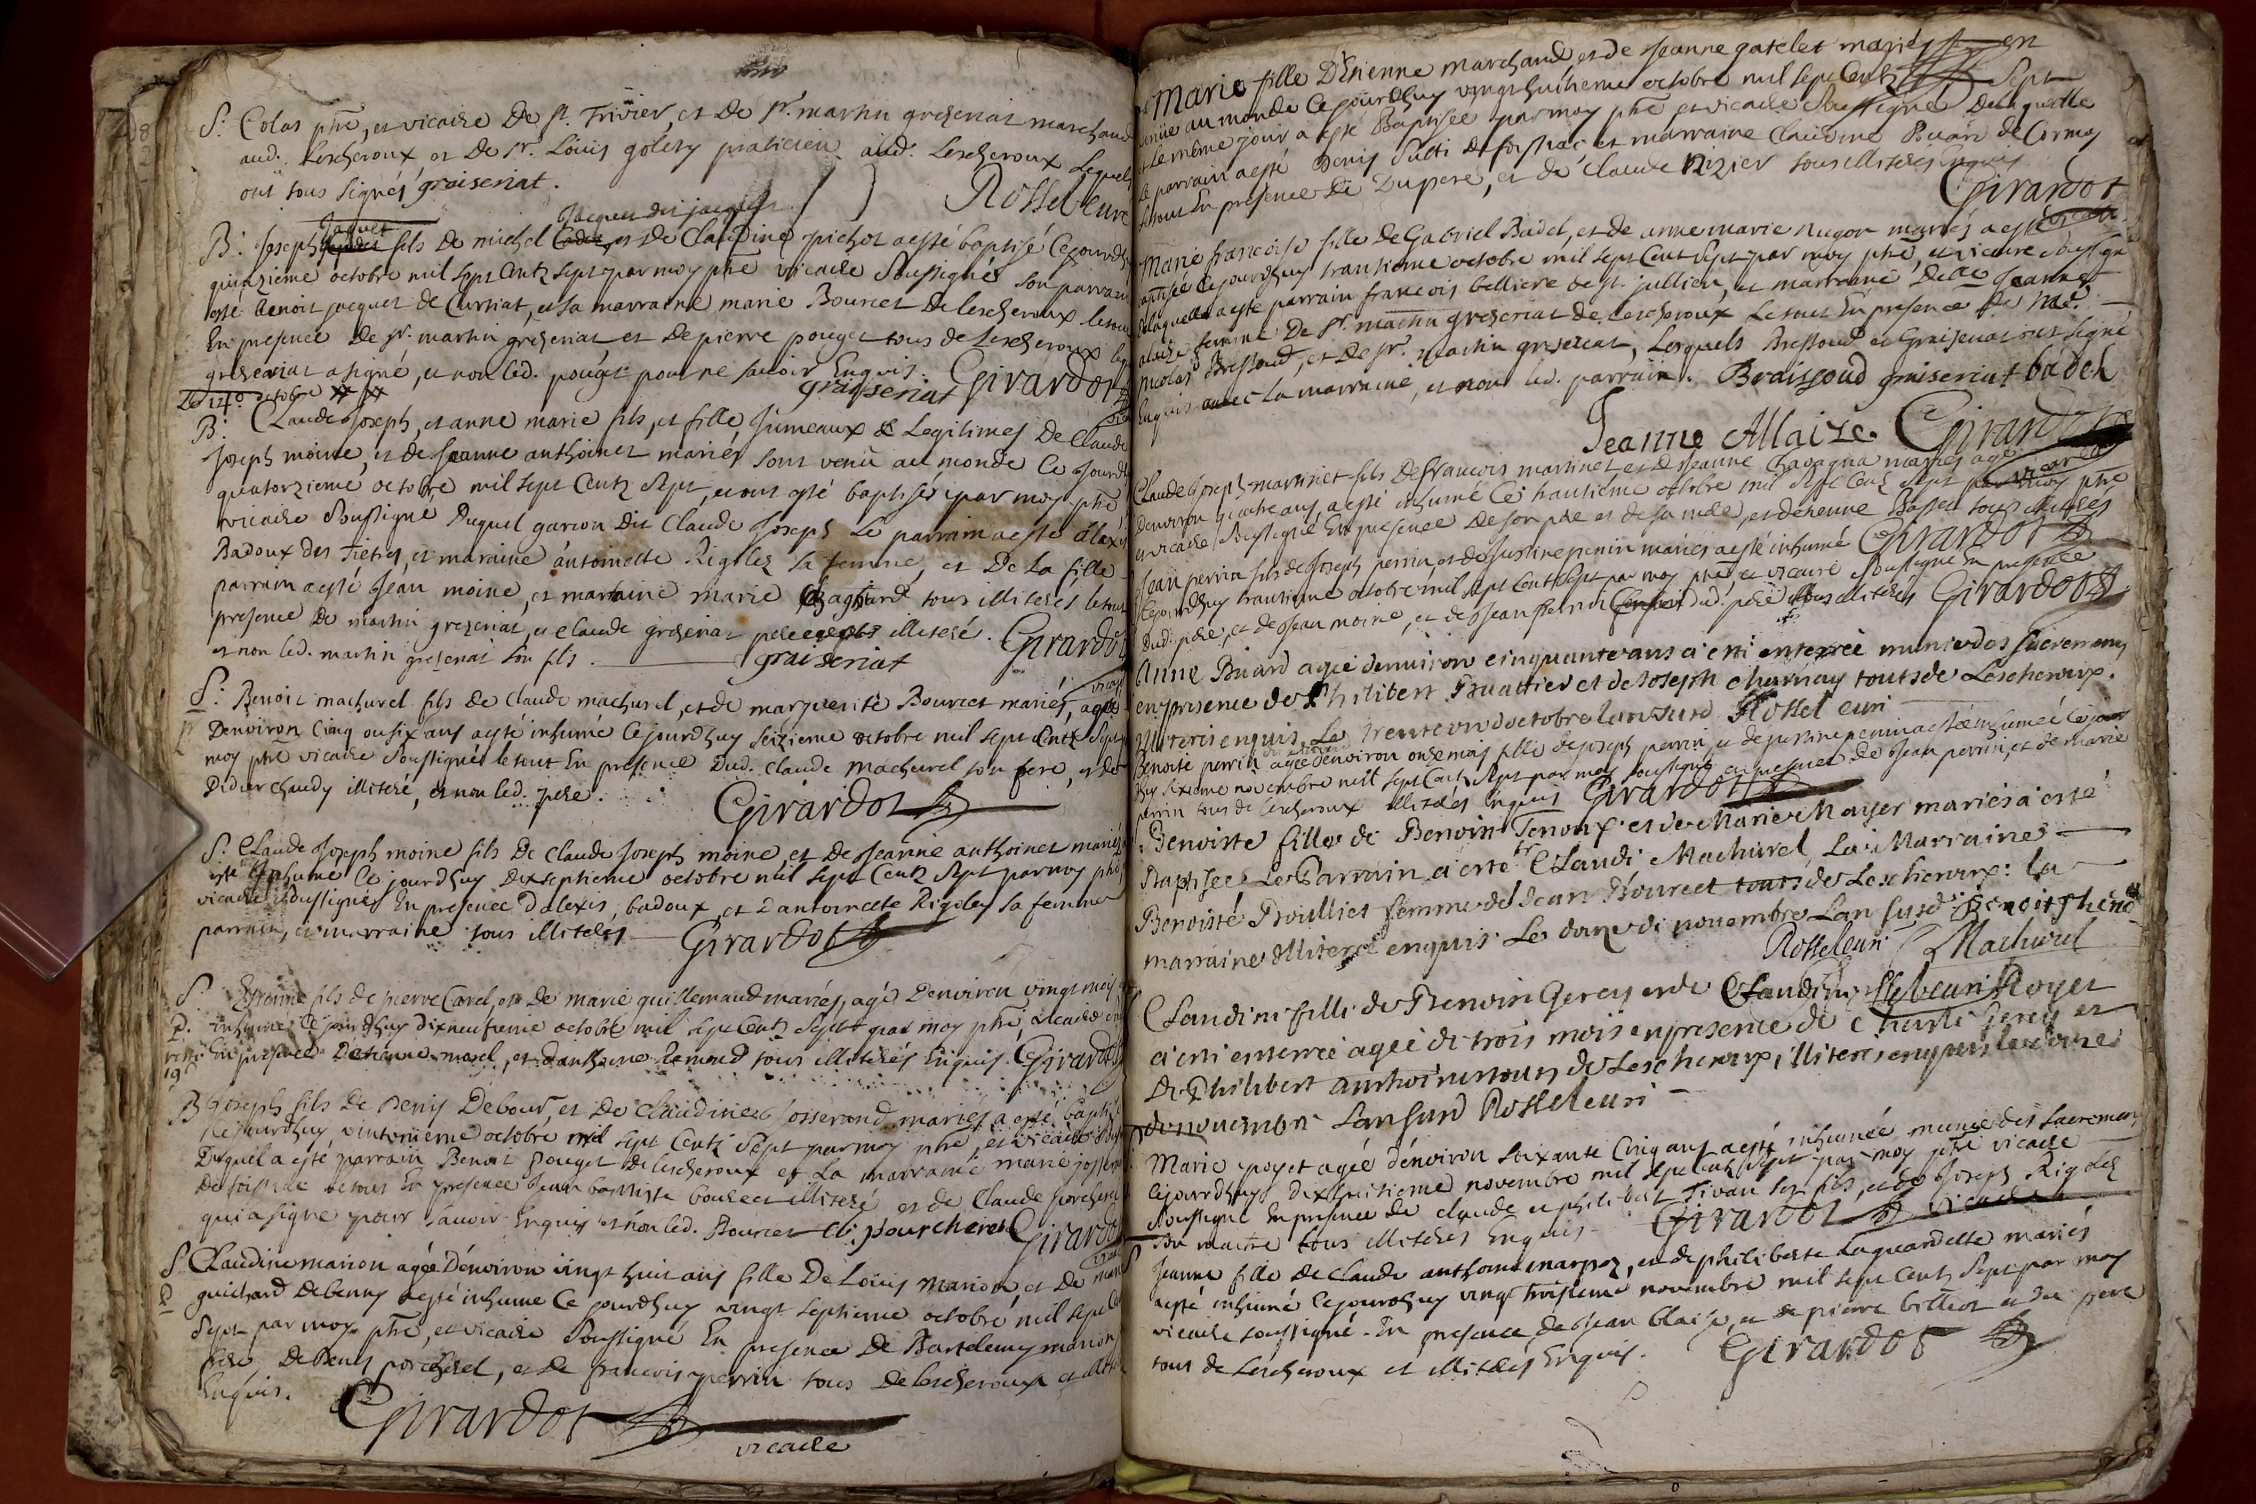 S. Colas ptre, et vicaire De St. Trivier, et De Sr. martin grezeriat marchand
aud. Lescheroux et De Sr. Louis golety praticien aud. Lescheroux Lequels
ont tous signés graiseriat.
Rosseleure
Jacquet dis jacques
B: Joseph Jaquet fils De michel et De Claudine pichot a esté baptisé Cejourdhuy
quinzieme octobre mil sept Centz sept par moy ptre vicaire Soussignés son parrain
esté benoit jacquet de Curtiat, et sa marraine marie Bourcet De lescheroux letout
En presence De Sr. martin grezeriat et De pierre pouget tous de Lescheroux
grezeriat a signé, et non led. pouget pour ne savoir Enquis.
graiseriat Girardot
Le 14e octobre
B: Claude Joseph, et anne marie fils, et fille Jumeaux & Legitimes De Claude
Joseph moine, et De Jeanne anthoinet mariés sont venu au monde Ce Jourdhuy
quatorzieme octobre mil sept Centz sept, et ont esté baptisés par moy ptre
vicaire Soussigné Duquel garcon dit Claude Joseph Le parrain a esté alexis
Badoux des fietres, et maraine antoinette Rigolez sa femme, et De La fille
parrain a esté Jean moine, et marraine marie tous illiterés letout
presence De martin grezeriat, et Claude grezeriat pere illiteré.
et non led. martin grezeriat son fils.
graiseriat Girardot
S: Benoit machurel fils de Claude machurel, et de marguerite Bourcet mariés, agé
Denviron Cinq ou six ans a esté inhumé Cejourdhuy seizieme octobre mil sept Centz sept
moy ptre vicaire Soussignés le tout En presence Dud. Claude machurel son pere, et de
Didier chaudy illiteré, et non led. pere.
Girardot
S. Claude Joseph moine fils De Claude Joseph moine, et De Jeanne anthoinet mariés
esté Inhumé Ce jourdhuy dixseptieme octobre mil sept Centz Sept par moy ptre
vicaire Soussignés En presence Dalexis badoux, et Dantoinette Rigolez sa femme
parrain, et marraine tous illiterés Girardot
S. Estienne fils de pierre Carel, et De marie guillemaud mariés, agé Denviron vingt mois
inhumé Cejourdhuy dixneufieme octobre mil sept Centz Sept par moy ptre, vicaire
En presence Detienne morel, et danthoine Remond tous illiterés Enquis. Girardot
19
B Joseph fils De Denis Debour, et De Claudine Josserand mariés a esté baptisé
Cejourdhuy octobre mil sept Centz Sept par moy ptre, et vicaire
Duquel a esté parrain Benoit pouget de lescheroux et La marraine marie
De foissiat le tout En presence Jean baptiste bourcet illiteré et de Claude porcherel
qui a signé pour savoir Enquis et non led. Bourcet Cl: pourcherel Girardot
S Claudine marion agée Denviron vingt huit ans fille De Louis Marion, et De
guichard Debenny a esté inhume Ce jourdhuy vingt septieme octobre mil sept
sept par moy ptre, et vicaire Soussigné En presence De Bartelemy marion
frere, De Denis porcherel, et De francois perrin tous De Lescheroux et
Enquis.
Girardot
vicaire
Marie fille D'Etienne marchand, et de Jeanne gatelet mariés
venüe au monde Cejourdhuy vingt huitieme octobre mil sept Centz Sept
et le même jour a esté Baptisée par moy ptre et vicaire Soussigné De laquelle
le parrain a esté Denis putti de foissiat et marraine Claudine Buard de Cormoz
letout En presence Du pere, et de Claude Nizier tous illiterés Enquis
Girardot
Marie francoise fille De Gabriel Badel, et de anne marie Nugon mariés a esté
baptisée Cejourdhuy trantieme octobre mil sept Cent Sept par moy ptre, et vicaire
de laquelle a esté parrain francois belliere de st. jullien, et marraine Delle Jeanne
alaize femme De Sr. martin grezeriat de Lescheroux Le tout En presence de me
nicolas Bressoud, et De Sr. martin grezeriat, Lesquels Bressoud et Graizeriat ont signé
Enquis avec La marraine, et non led. parrain. Braissoud graiseriat badel
Jeanne Allaize Girardot
vicaire
Claude Joseph martinet fils De francois martinet et De Jeanne Chavagna mariés agé
Denviron quatre ans, a esté inhumé Ce trantieme octobre mil Sept Centz Sept par moy ptre
et vicaire Soussigné En presence De son pere et de sa mere, et detienne Bassett tous illiterés
Girardot
Jean perrin fils de Joseph perrin et de Justine perrin mariés a esté inhumé
Cejourdhuy trantieme octobre mil sept Cent sept par moy ptre et vicaire Soussigné En presence
Dud. pere, et de Jean moine, et de Jean perrin dud. pere tous illiterés Girardot
Anne Buard agée denuiron cinquante ans a eté enterrée munie des sacremens
en presence de Philibert Buattier et de Joseph charnay touts de Lescheroux.
illiterés enquis. Le trente un d'octobre l'an susd Rosseleure
Benoite perrin agée denviron onze mois fille de joseph perrin, et de justine perrin a esté inhumée Cejour
dhuy sixieme novembre mil sept Cent sept par moy soussigné en presence de Jean perrin, et de marie
perrin tous de Lescheroux illiterés Enquis Girardot
Benoiste fille de Benoin Tenoux et de Marie Mayer mariés a esté
Baptisée Le Parrain a esté Sr. Claude Machurel, La Marraine
Benoiste Broulliet femme de Jean Bourcet touts de Lescheroux: la
marraine illiterée enquis. Le douze de novembre Lan Susd Benoist
Rosseleure Machurel
Claudine fille de Benoin Gerey et de Claudine Royer
a eté enterrée agée de trois mois en presence de Charle Gerey et
de Philibert anthoine touts de Lescheroux, illiterés enquis le douze
de novembre Lan susd Rosseleure
Marie poyet agée d'environ soixante Cinq ans a esté inhumée, munie des Sacremens
Cejourdhuy dixhuitieme novembre mil sept Centz Sept par moy ptre vicaire
Soussigné En presence de claude et philibert Tivan ses fils, et de Joseph Rigolez
Son maitre tous illiterés Enquis. Girardot vicaire
Jeanne fille De Claude anthoine marpoz, et de philiberte Laguardette mariés
a esté inhumé Cejourdhuy vingt troisieme novembre mil sept Centz Sept par moy
vicaire soussigné. En presence de Jean blaise, et de pierre billiot et du pere
tous de Lescheroux et illiterés Enquis. Girardot